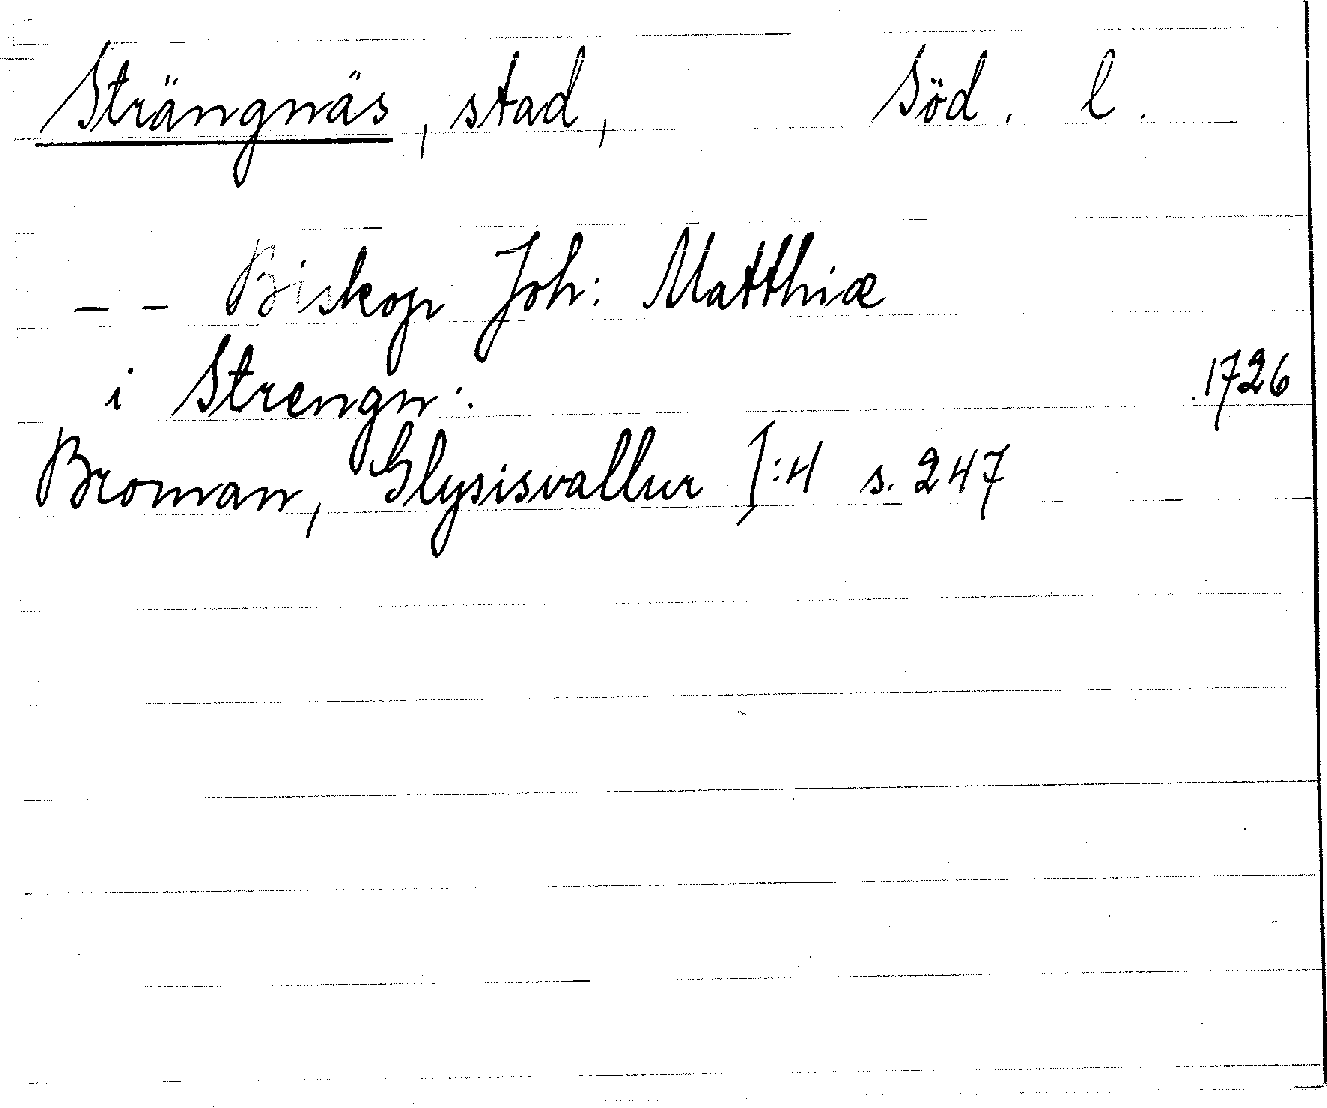 Strängnäs, stad, Söd. l.
– – Biskop Joh: Matthiæ
i Strengn:. 1726
Broman, Glysisvallur I:4 s. 247